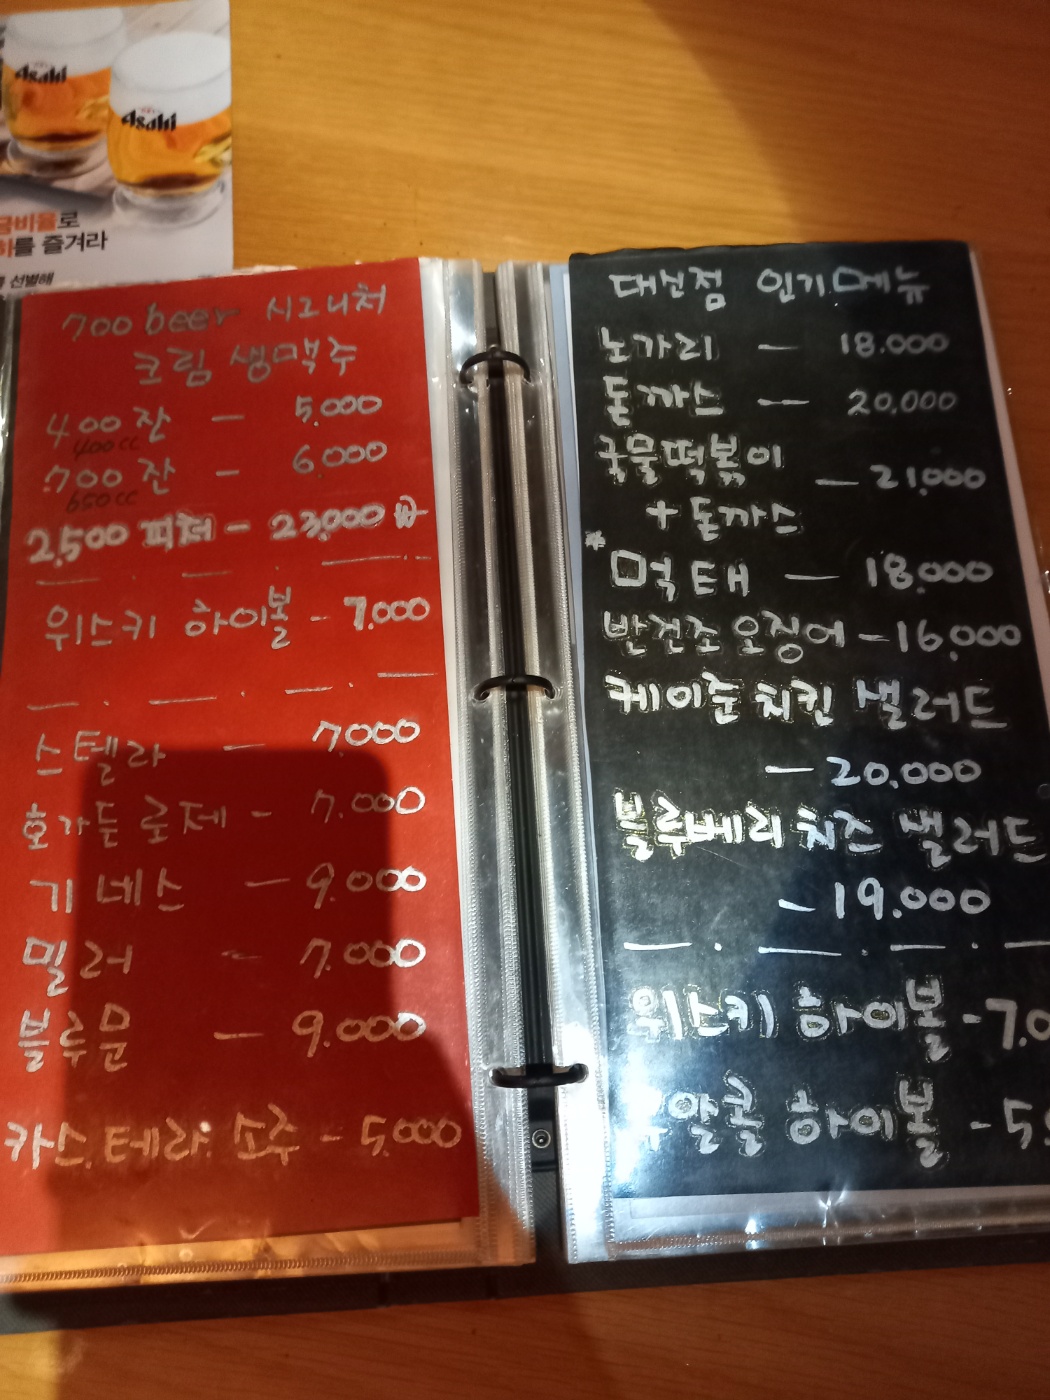 Asahi
Asahi
금비율로
하를 즐겨라
선별해
700 beer 시그니처
크림 생맥주
400잔 - 5,000
400cc
700잔 - 6,000
650cc
2,500 피처 - 23,000
위스키 하이볼 - 7,000
스텔라 - 7,000
호가든 로제 - 7,000
기네스 - 9,000
밀러 - 7,000
블루문 - 9,000
카스.테라. 소주 - 5,000
대신점 인기메뉴
노가리 - 18.000
돈까스 - 20,000
국물떡볶이 - 21,000
+ 돈까스
*먹태 - 18,000
반건조 오징어 - 16,000
케이준 치킨 샐러드
- 20,000
블루베리 치즈 샐러드
- 19,000
위스키 하이볼 - 7.0
알콜 하이볼 - 5